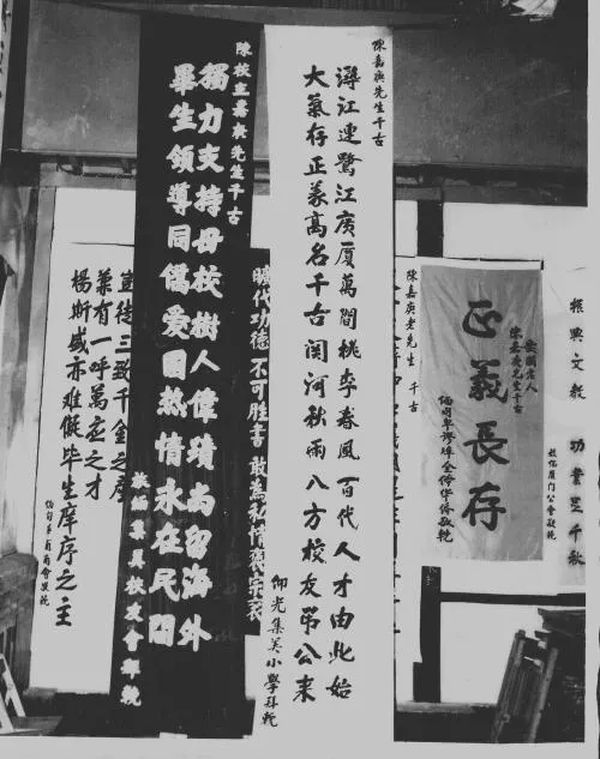 振興文教 功業千秋
旅緬厦门公會敬輓
愛國老人
陳嘉庚先生千古
正義長存
緬甸卑謬埠全体华侨敬輓
陳嘉庚老先生 千古
陳嘉庚先生千古
潯江連鷺江廣厦萬間桃李春風百代人才由此始
大氣存正義高名千古関河秋雨八方校友弔公来
仰光集美小學拜輓
時代功德不可胜書 敢為私情
陳校主嘉庚先生千古
獨力支持母校樹人偉蹟尚留海外
畢生領導同僑爱國热情永在民間
旅緬集美校友會敬輓
豈徒三致千金之產
業有一呼萬众之才
楊斯盛亦难儗毕生庠序之主
緬甸商會敬輓